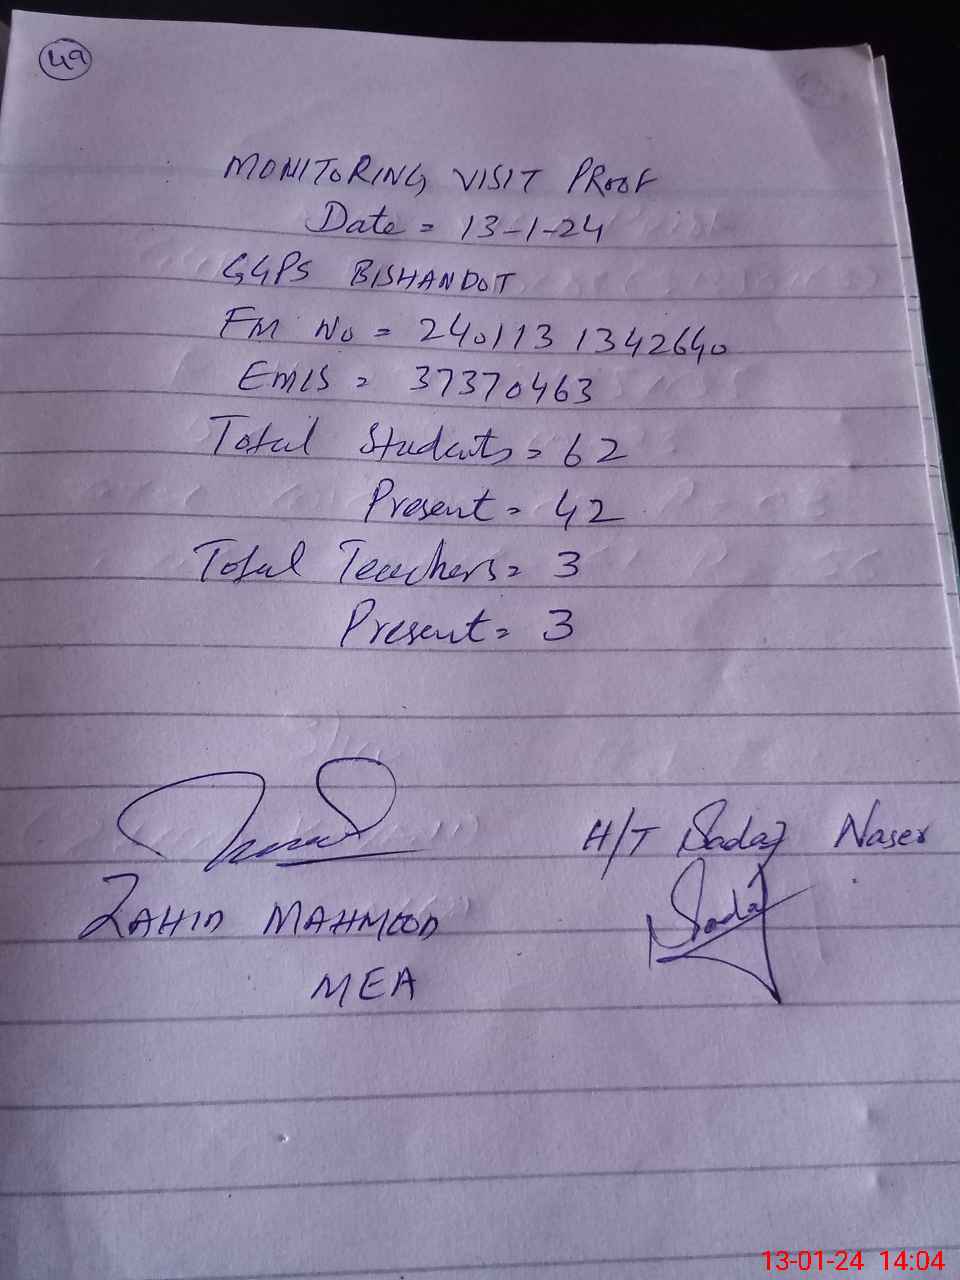 49
MONITORING VISIT PROOF
Date = 13-1-24
GGPS BISHANDOT
FM No = 240113 1342640
EMIS = 37370463
Total Students = 62
Present = 42
Total Teachers = 3
Present = 3
H/T Sadaf Naser
ZAHID MAHMOOD
Sadaf
MEA
13-01-24 14:04